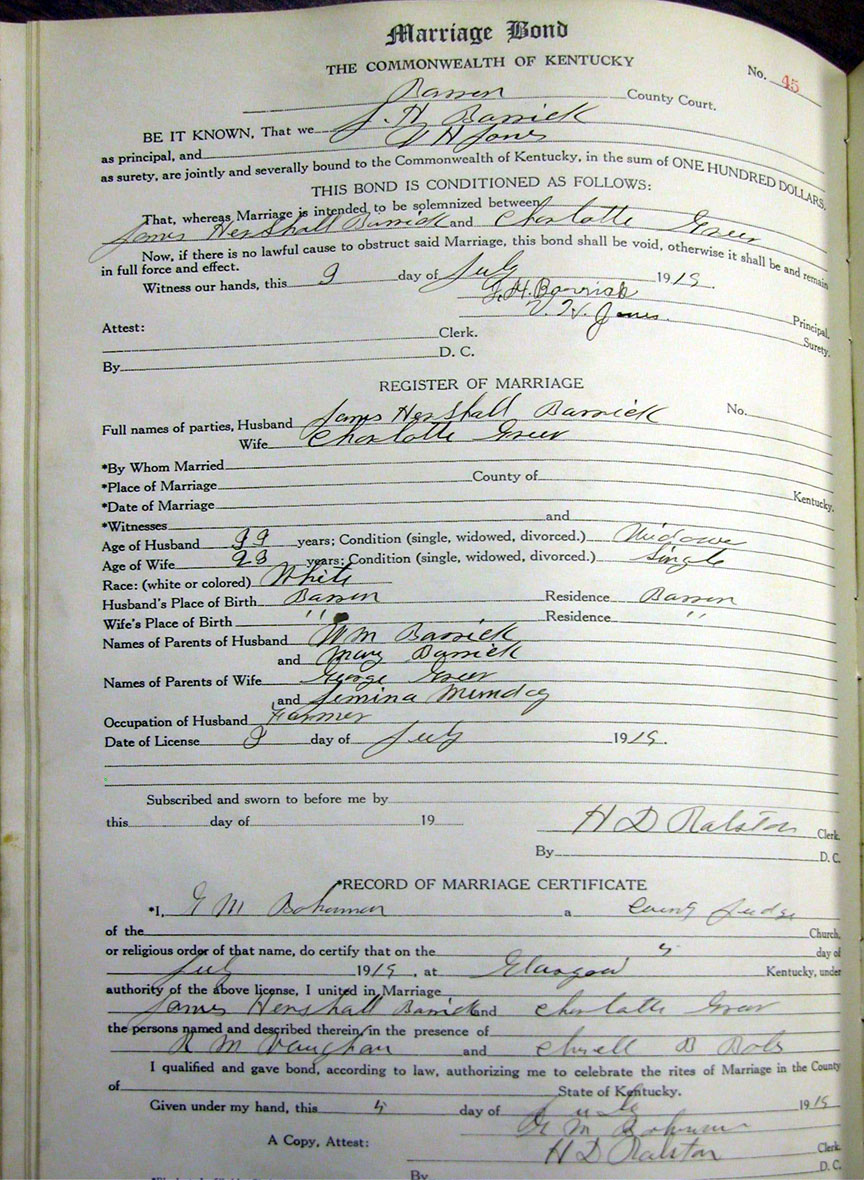 Marriage Bond
THE COMMONWEALTH OF KENTUCKY
No. 45
Barren County Court.
BE IT KNOWN, That we J. H. Barrick
as principal, and V H Jones
as surety, are jointly and severally bound to the Commonwealth of Kentucky, in the sum of ONE HUNDRED DOLLARS.
THIS BOND IS CONDITIONED AS FOLLOWS:
That, whereas Marriage is intended to be solemnized between
James Hershall Barrick and Charlotte Greer
Now, if there is no lawful cause to obstruct said Marriage, this bond shall be void, otherwise it shall be and remain
in full force and effect.
Witness our hands, this day of July 1915.
J. H. Barrick Principal.
V. H. Jones. Surety.
Attest:
Clerk.
By D. C.
REGISTER OF MARRIAGE
No.
Full names of parties, Husband James Hershall Barrick
Wife Charlotte Greer
*By Whom Married
*Place of Marriage County of Kentucky.
*Date of Marriage
*Witnesses and
Age of Husband years; Condition (single, widowed, divorced.)
Age of Wife 23 years; Condition (single, widowed, divorced.) Single
Race: (white or colored) White
Husband's Place of Birth Barren Residence Barren
Wife's Place of Birth " Residence "
Names of Parents of Husband Wm Barrick
and Mary Barrick
Names of Parents of Wife George Greer
and Munday
Occupation of Husband Farmer
Date of License day of July 1915.
Subscribed and sworn to before me by
this day of 19
H D Ralston Clerk.
By D. C.
*RECORD OF MARRIAGE CERTIFICATE
*I, M a County Judge
of the Church,
or religious order of that name, do certify that on the day of
July 1915, at Glasgow Kentucky, under
authority of the above license, I united in Marriage
James Hershall Barrick and Charlotte Greer
the persons named and described therein, in the presence of
R M Vaughan and B
I qualified and gave bond, according to law, authorizing me to celebrate the rites of Marriage in the County
of State of Kentucky.
Given under my hand, this day of July 1915
M
A Copy, Attest: H D Ralston Clerk
By D. C.